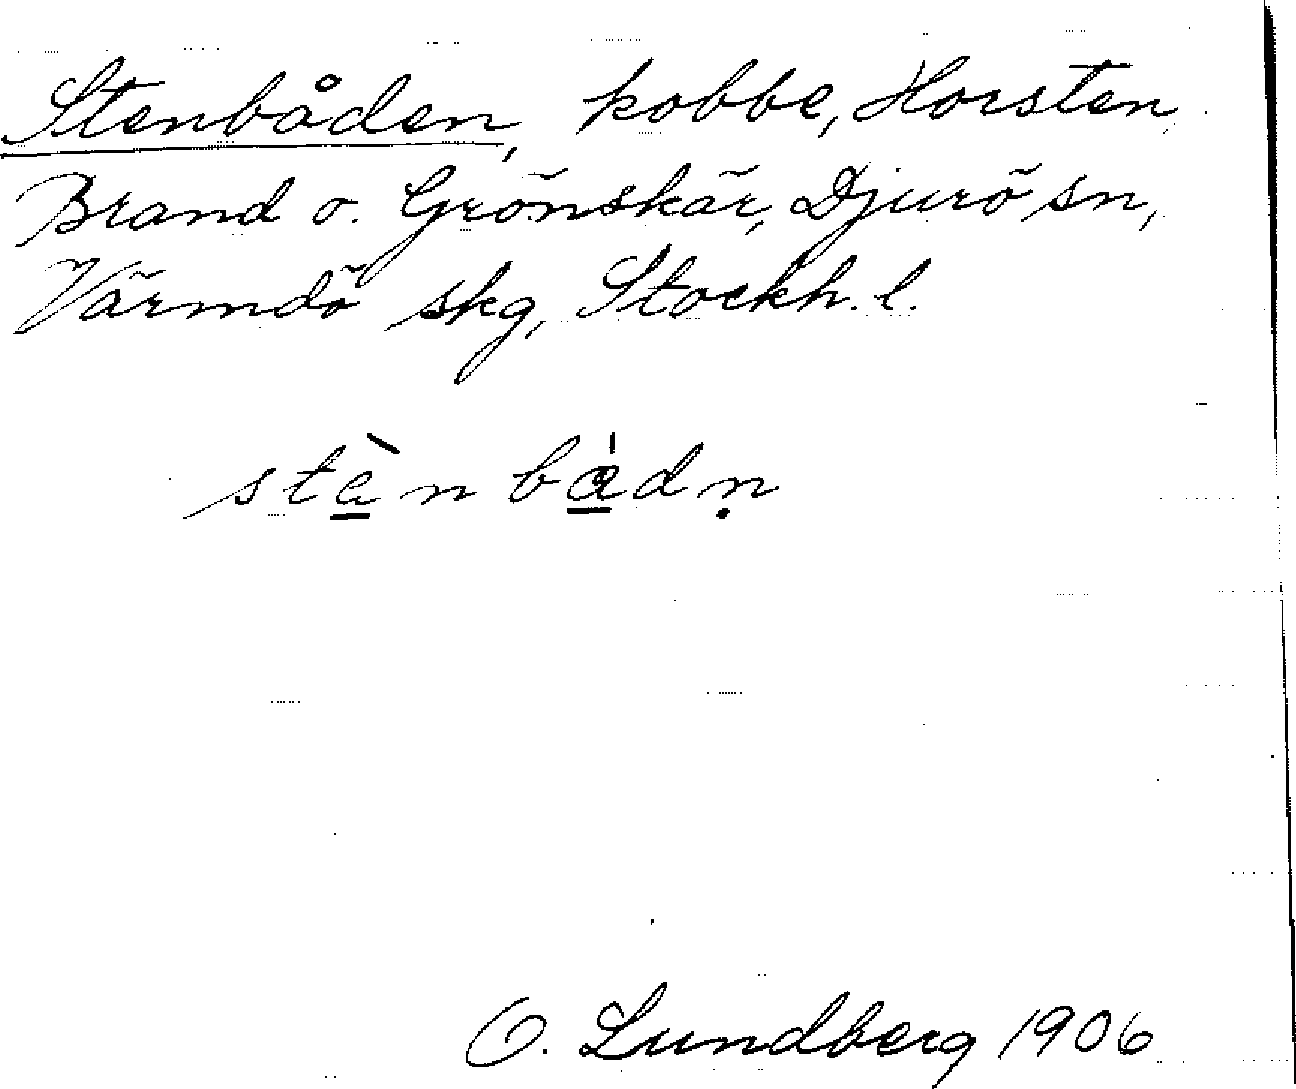 Stenbåden, kobbe, Horsten
Brand o. Grönskär, Djurö sn,
Värmdö skg, Stockh. l.
stèn bådṇ
O. Lundberg 1906